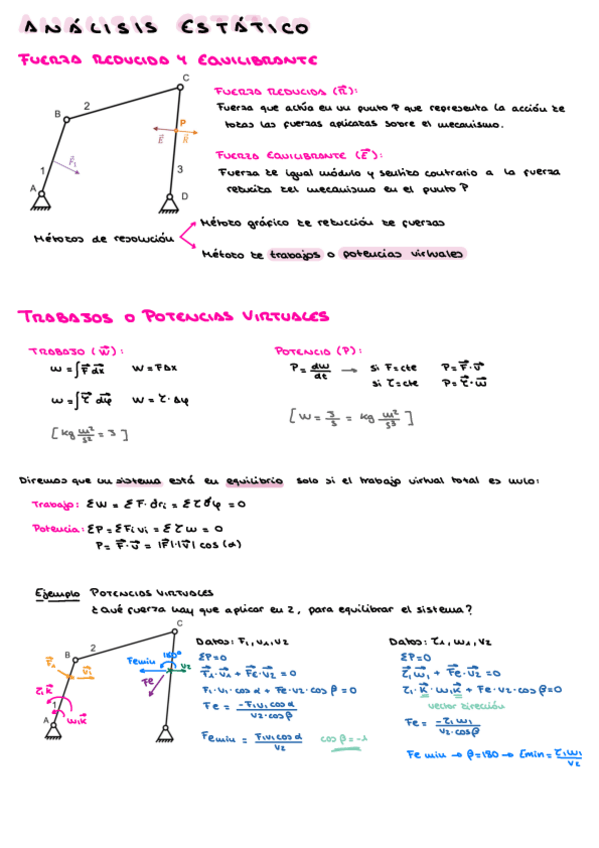 ANÁLISIS ESTÁTICO
FUERZA REDUCIDA Y EQUILIBRANTE
FUERZA REDUCIDA (R⃗):
Fuerza que actúa en un punto P que representa la acción de
todas las fuerzas aplicadas sobre el mecanismo.
FUERZA EQUILIBRANTE (E⃗):
Fuerza de igual módulo y sentido contrario a la fuerza
reducida del mecanismo en el punto P
A
B
C
D
1
2
3
P
F⃗₁
E⃗
R⃗
Métodos de resolución
Método gráfico de reducción de fuerzas
Método de trabajos o potencias virtuales
TRABAJOS O POTENCIAS VIRTUALES
TRABAJO (W⃗):
W = ∫F⃗ dx⃗ W = F Δx
W = ∫τ⃗ dφ⃗ W = τ · Δφ
[kg m²/s² = J]
POTENCIA (P):
P = dW/dt → si F = cte P = F⃗ · v⃗
si τ = cte P = τ⃗ · ω⃗
[W = J/s = kg m²/s³]
Diremos que un sistema está en equilibrio solo si el trabajo virtual total es nulo:
Trabajo: ΣW = ΣF · dri = Στ δφ = 0
Potencia: ΣP = ΣFi vi = Στ ω = 0
P = F⃗ · v⃗ = |F⃗|·|v⃗| cos (α)
Ejemplo POTENCIAS VIRTUALES
¿Qué fuerza hay que aplicar en 2, para equilibrar el sistema?
A
B
C
1
2
F⃗₁
v⃗₁
τ₁k⃗
ω₁k⃗
Femin 180°
v₂
Fe
Datos: F₁, v₁, v₂
ΣP = 0
F⃗₁ · v⃗₁ + F⃗e · v⃗₂ = 0
F₁ · v₁ · cos α + Fe · v₂ · cos β = 0
Fe = -F₁v₁ cos α / v₂ · cos β
Femin = F₁v₁ cos α / v₂ cos β = -1
Datos: τ₁, ω₁, v₂
ΣP = 0
τ⃗₁ω⃗₁ + F⃗e · v⃗₂ = 0
τ₁ · k⃗ · ω₁k⃗ + Fe · v₂ · cos β = 0
vector dirección
Fe = -τ₁ω₁ / v₂ · cos β
Fe min → β = 180 → Emin = τ₁ω₁ / v₂